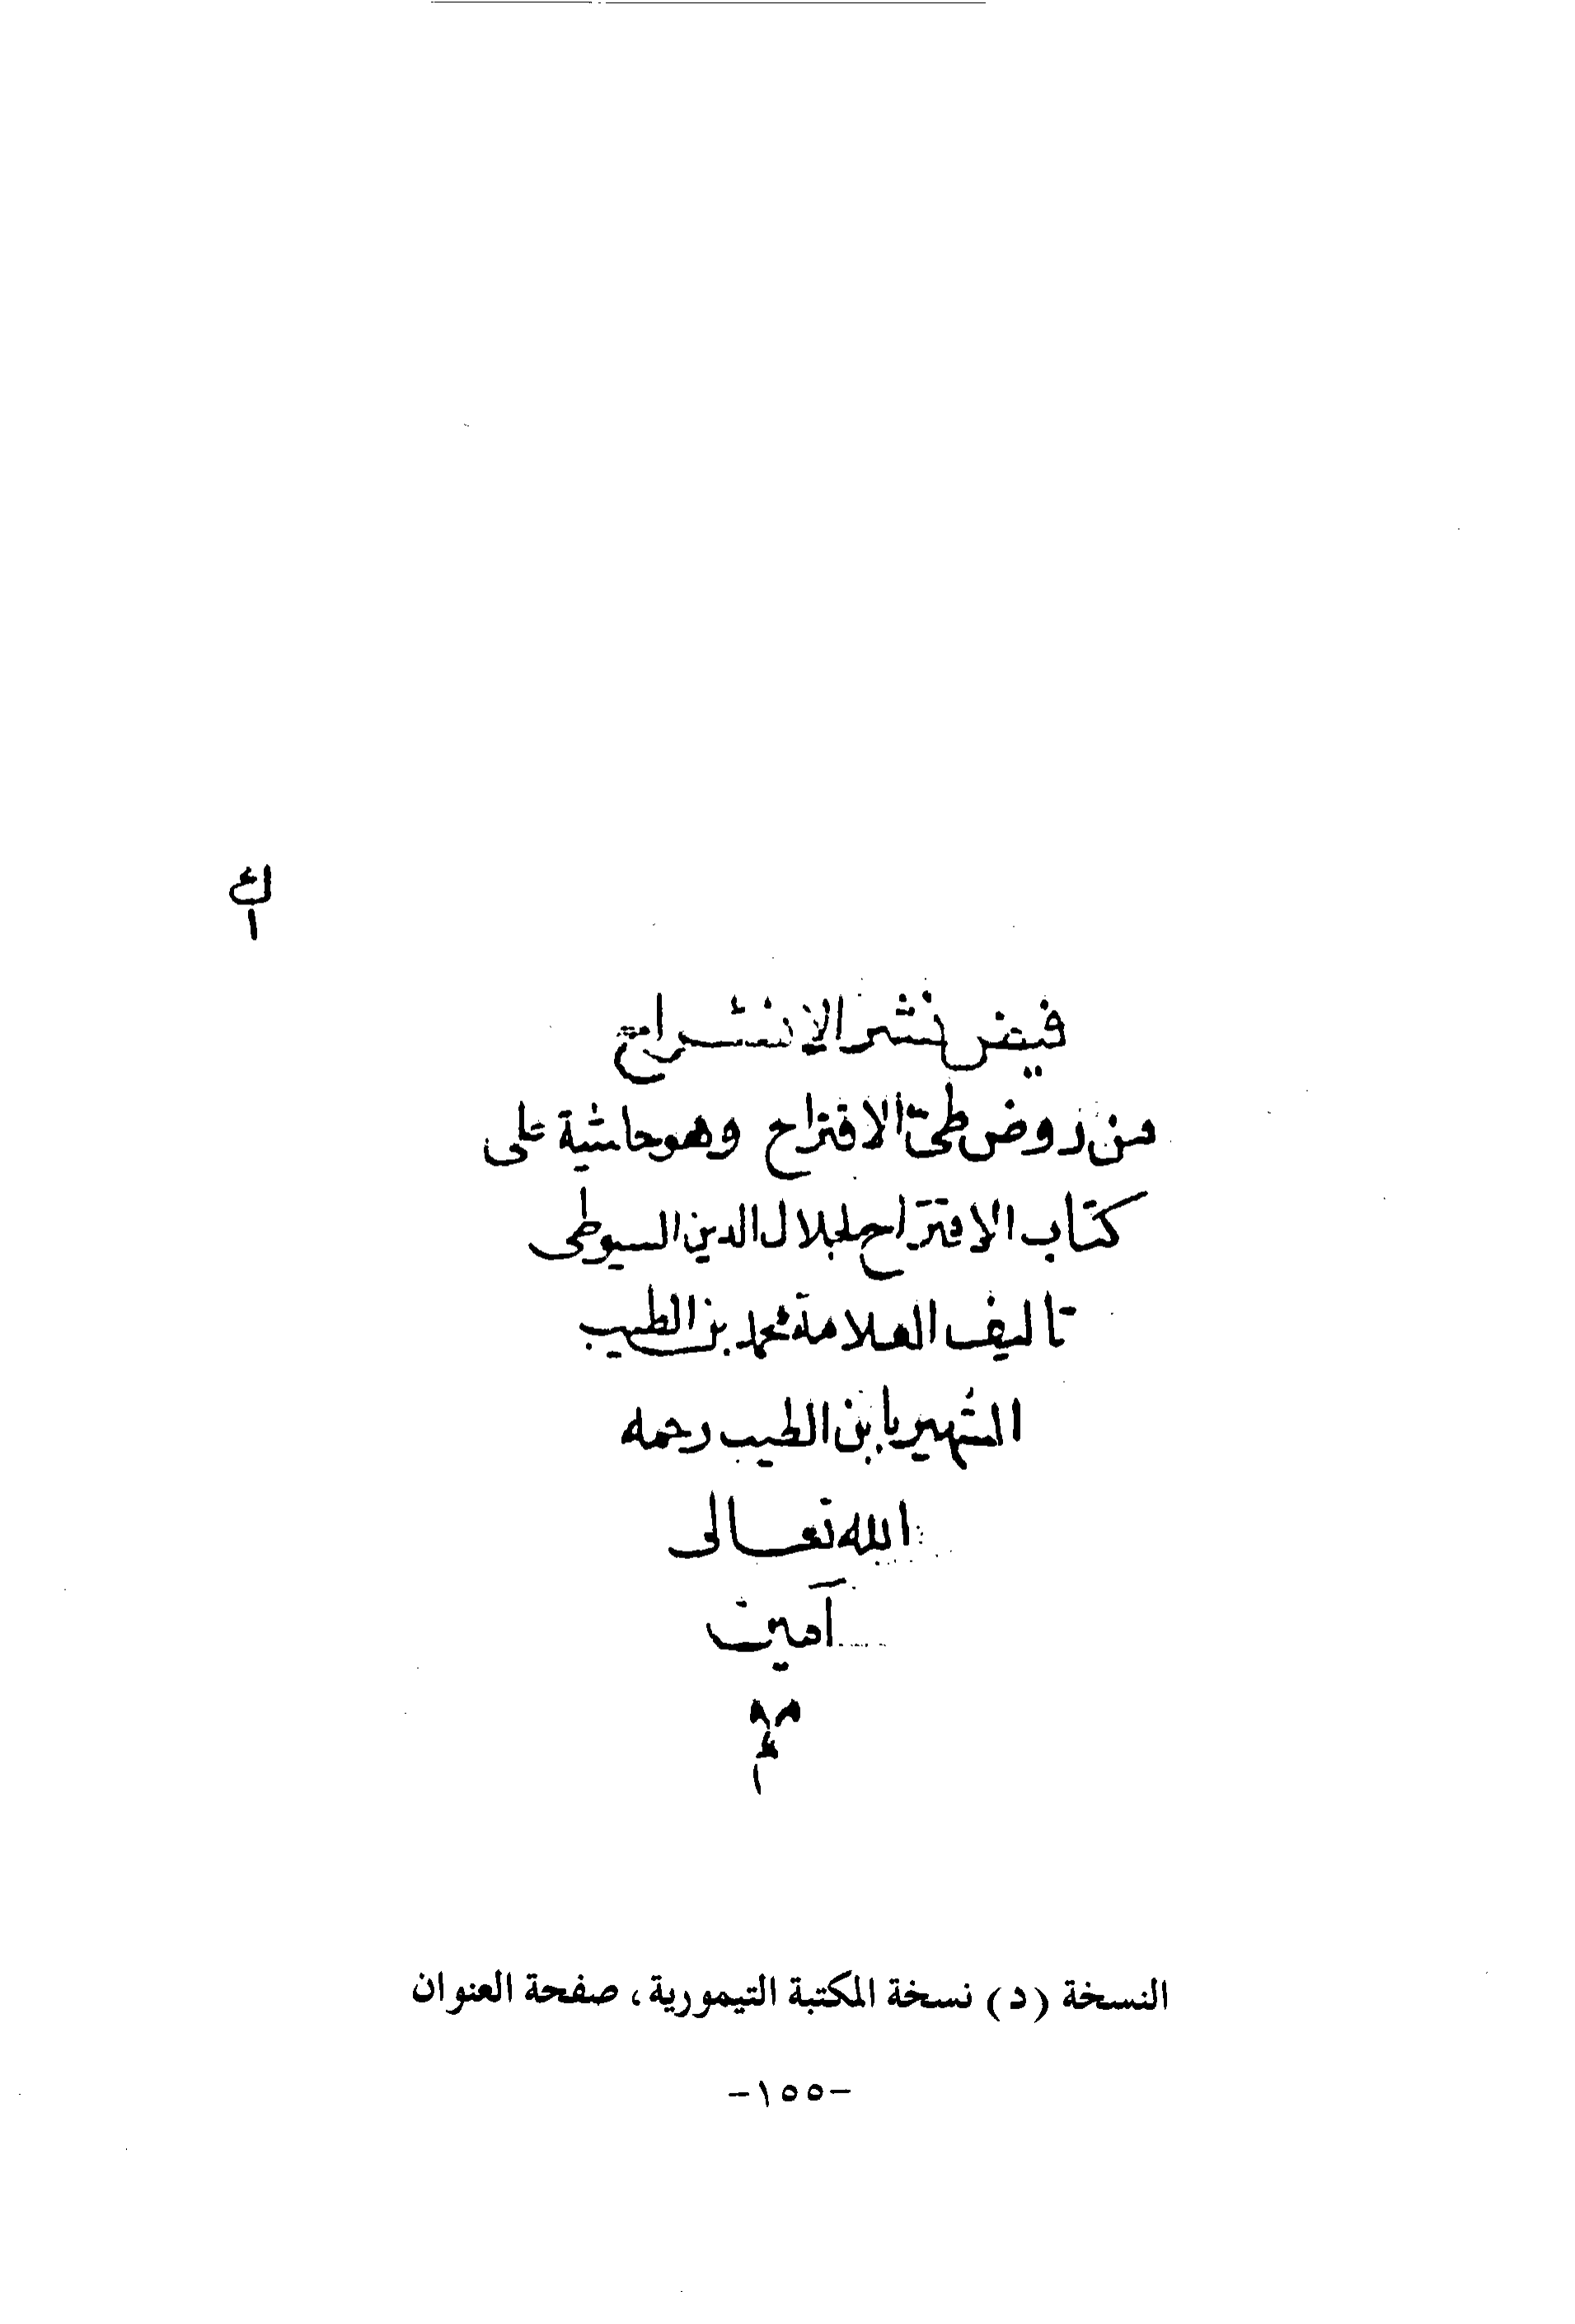 فيض نشر الانشراح
من روض طىّ الاقتراح وهو حاشية على
كتاب الاقتراح لجلال الدين السيوطى
تاليف العلامة محمد بن الطيب
الشهير بابن الطيب رحمه
الله تعالى
آمين
النسخة (د) نسخة المكتبة التيمورية، صفحة العنوان
-١٥٥-